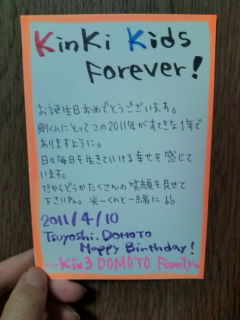 KinKi Kids
Forever!
お誕生日おめでとうございます。
剛くんにとってこの2011年がすてきな1年で
ありますように。
日々毎日を生きていける幸せを感じて
います。
だからどうかたくさんの笑顔を見せて
下さいね。光一くんと一緒に
2011/4/10
Tsuyoshi.DOMOTO
Happy Birthday!
~Kix3 DOMOTO Family~